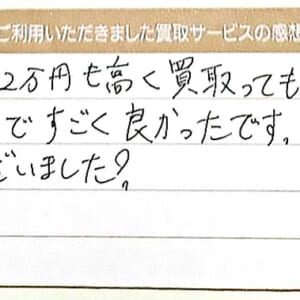 ご利用いただきました買取サービスの感想
2万円も高く買取っても
ですごく良かったです。
ざいました?